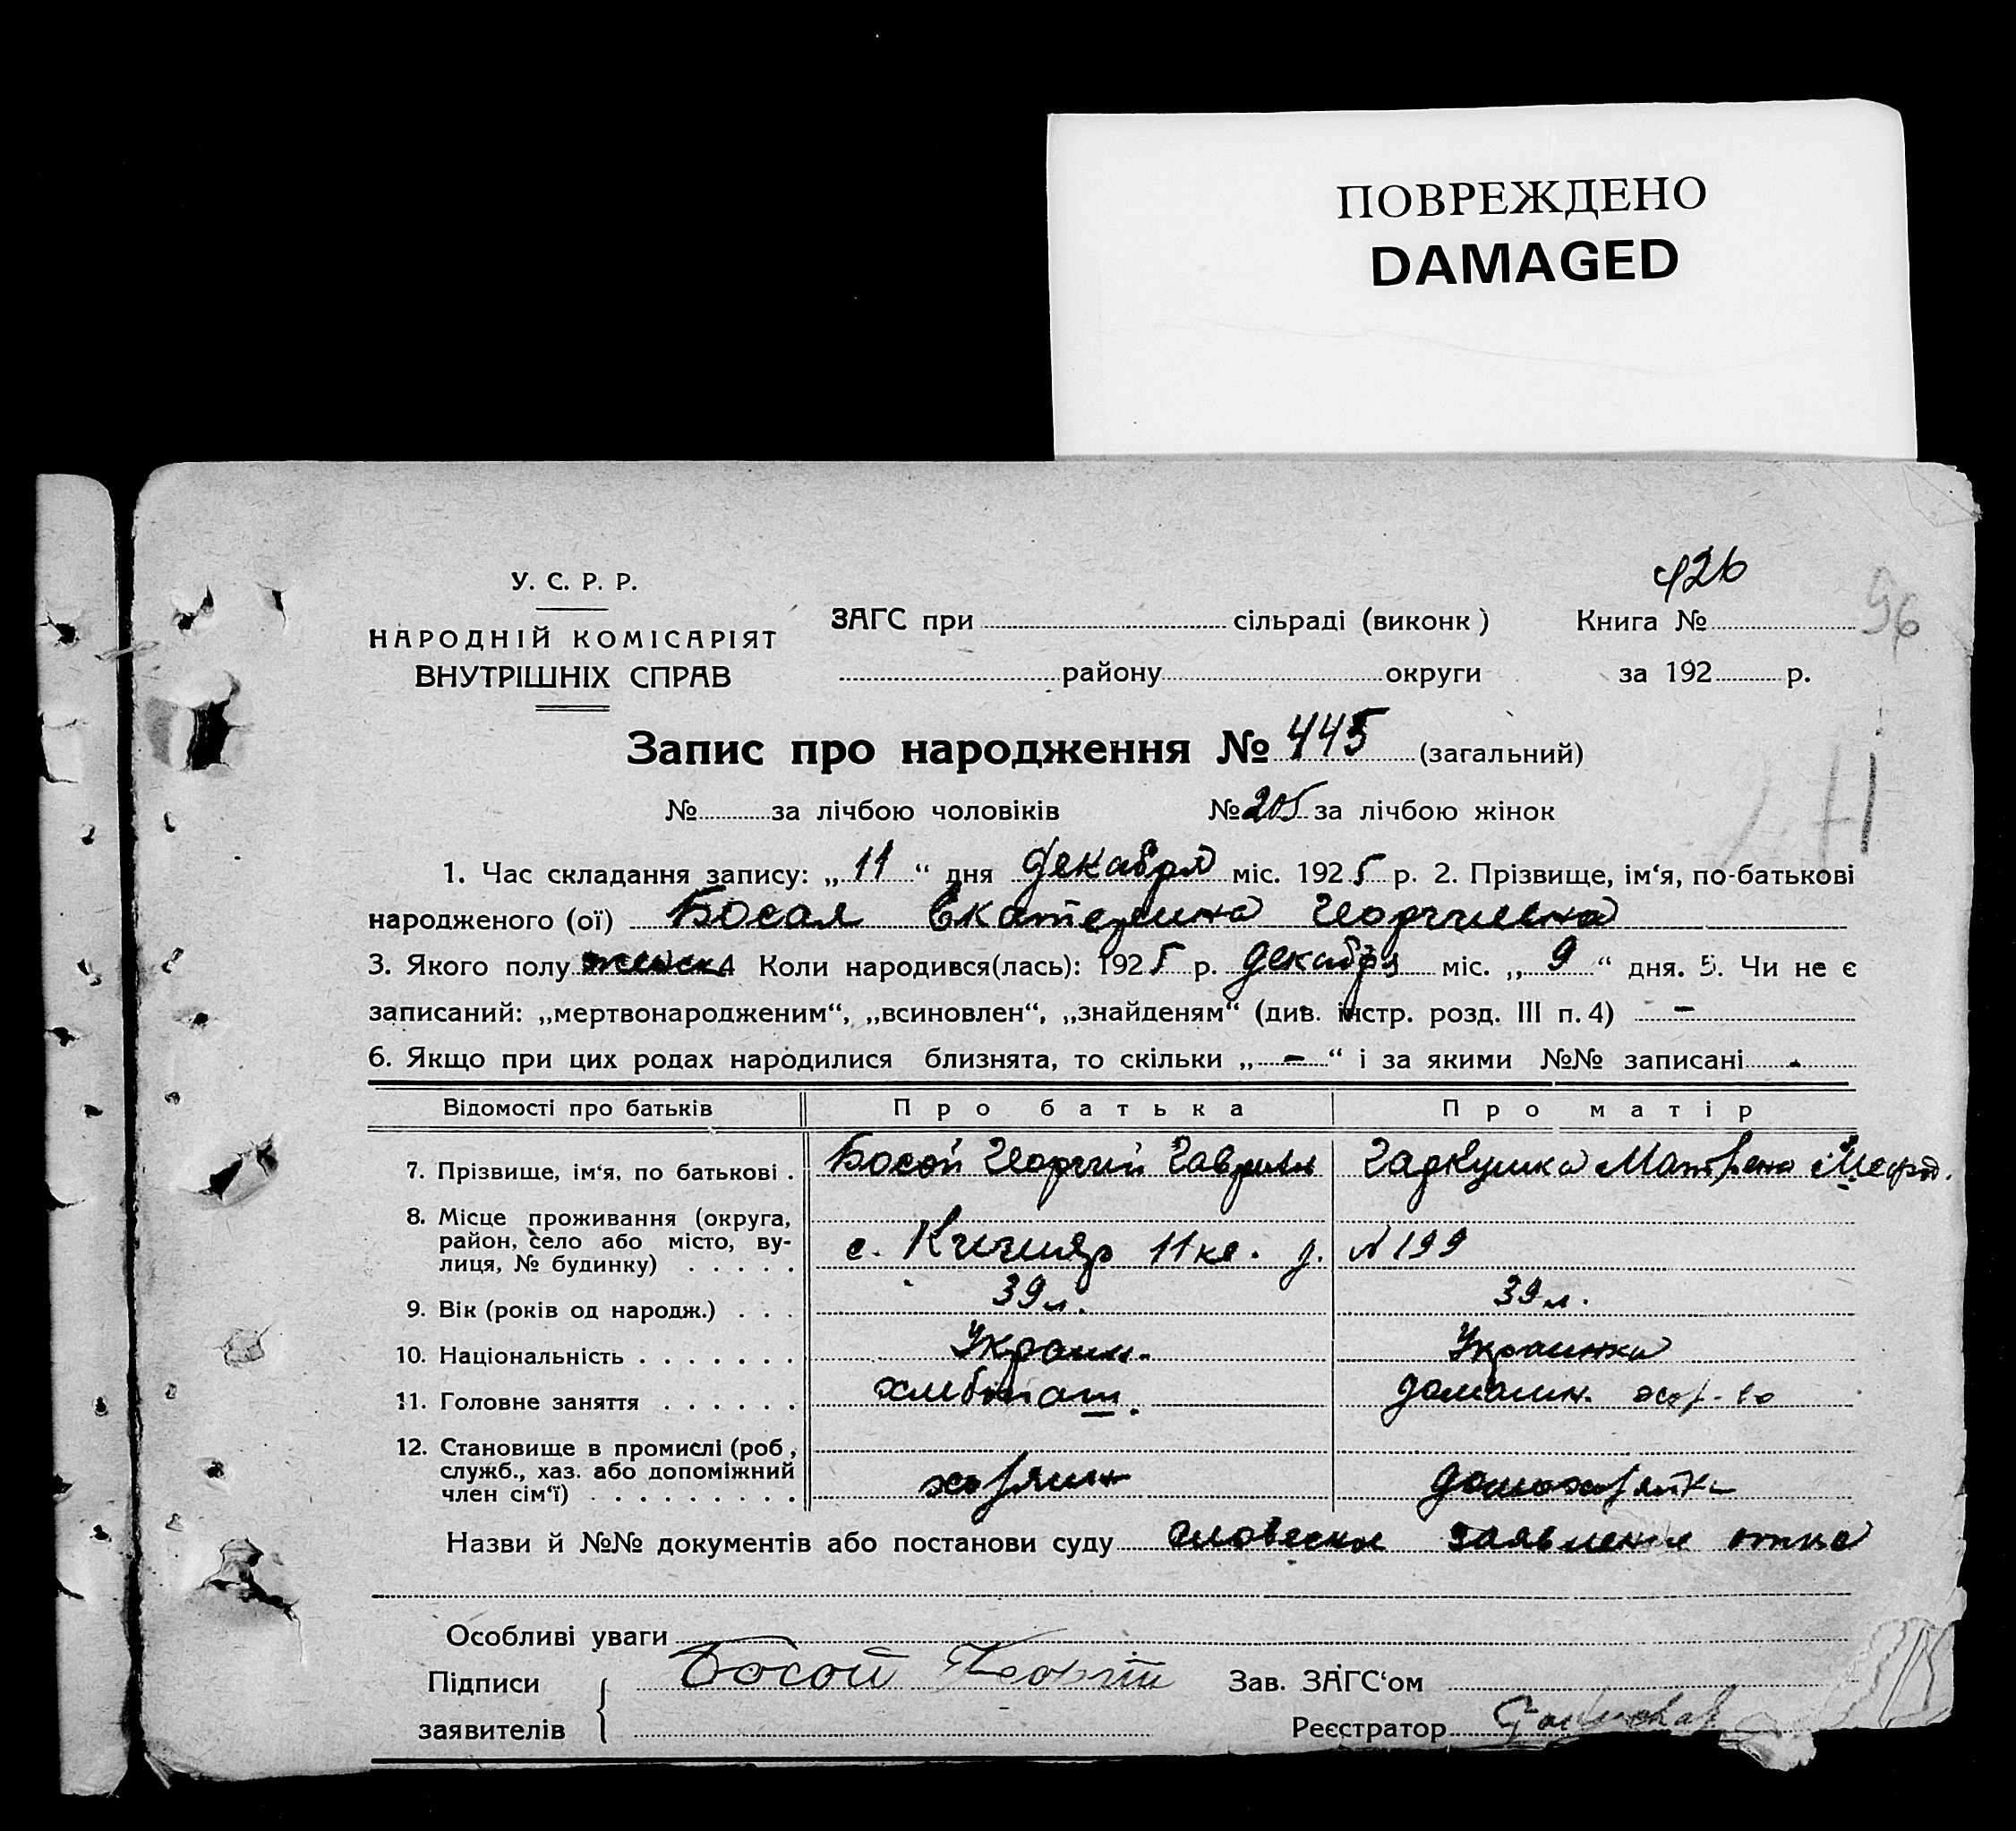 ПОВРЕЖДЕНО
DAMAGED
426
96
У. С. Р. Р.
НАРОДНІЙ КОМІСАРІЯТ
ВНУТРІШНІХ СПРАВ
ЗАГС при сільраді (виконк)
Книга №
району округи
за 192 р.
Запис про народження № 445 (загальний)
№ за лічбою чоловіків № 205 за лічбою жінок
1. Час складання запису: „ 11 “ дня Декабря міс. 1925 р. 2. Прізвище, ім‘я, по-батькові
народженого (ої) Босая Екатерина Георгиевна
3. Якого полу женск 4 Коли народився(лась): 1925 р. декабря міс. „ 9 “ дня. 5. Чи не є
записаний: „мертвонародженим“, „всиновлен“, „знайденям“ (див. інстр. розд. III п. 4) -
6. Якщо при цих родах народилися близнята, то скільки „ - “ і за якими №№ записані -
Відомості про батьків Про батька Про матір
7. Прізвище, ім‘я, по батькові . Босой Георгий Гаврилл Гаркушка Матрена Мефод.
8. Місце проживання (округа,
район, село або місто, ву-
лиця, № будинку) . . . . . с. 11 кв. д. № 199
9. Вік (років од народж.) . . . 39 л. 39 л.
10. Національність . . . . . . . Украин. Украинка
11. Головне заняття . . . . . . хлебопаш. домашн. хоз-во
12. Становище в промислі (роб.,
служб., хаз. або допоміжний
член сім‘ї) . . . . . . . . . хозяин домохозяйка
Назви й №№ документів або постанови суду словесн заявление отца
Особливі уваги
Підписи Босой Георгій Зав. ЗАГС‘ом
заявителів Реєстратор